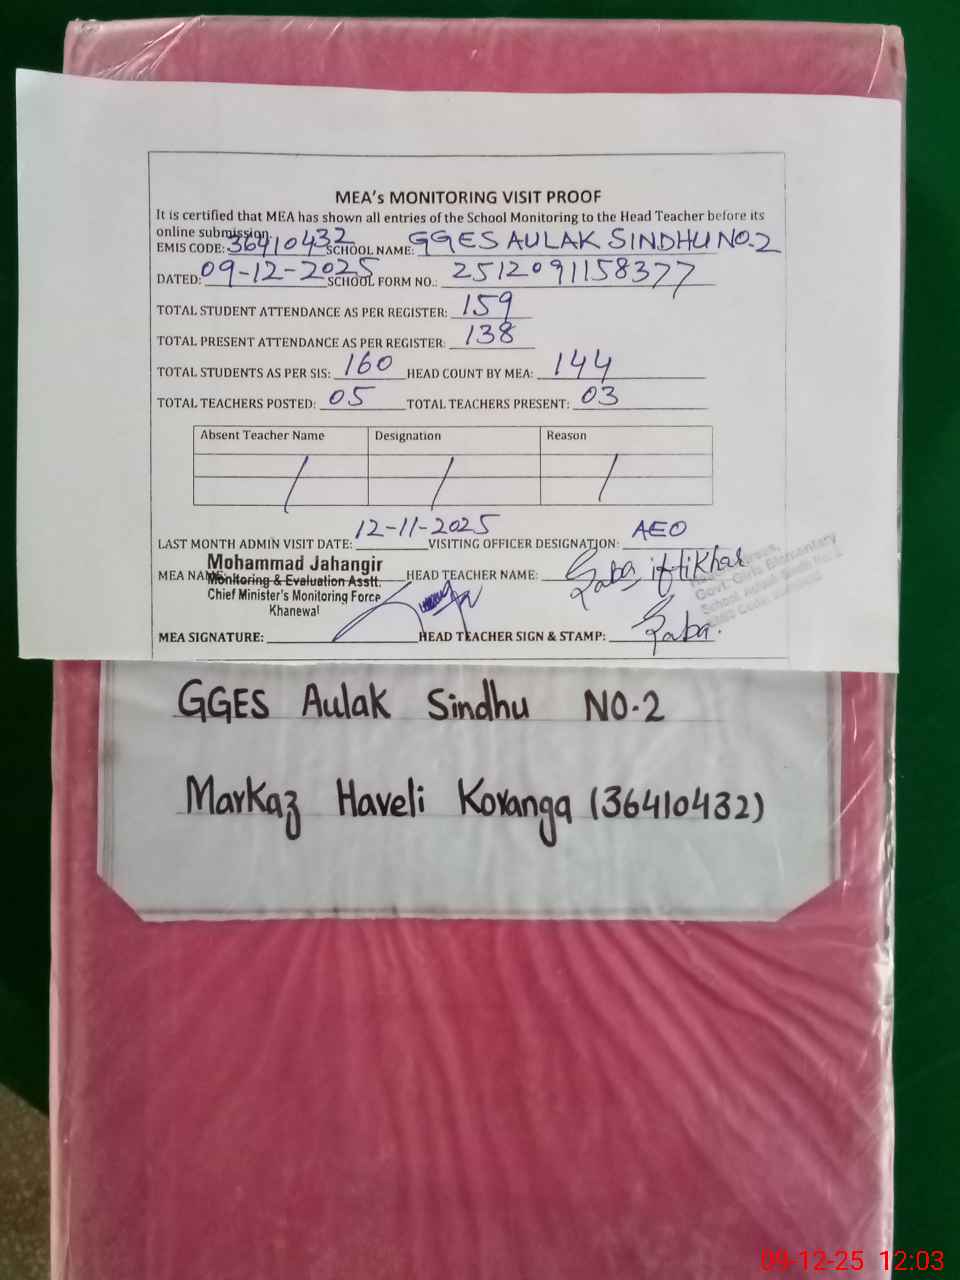 MEA's MONITORING VISIT PROOF
It is certified that MEA has shown all entries of the School Monitoring to the Head Teacher before its
online submission.
EMIS CODE: 36410432 SCHOOL NAME: GGES AULAK SINDHU NO.2
DATED: 09-12-2025 SCHOOL FORM NO.: 2512091158377
TOTAL STUDENT ATTENDANCE AS PER REGISTER: 159
TOTAL PRESENT ATTENDANCE AS PER REGISTER: 138
TOTAL STUDENTS AS PER SIS: 160 HEAD COUNT BY MEA: 144
TOTAL TEACHERS POSTED: 05 TOTAL TEACHERS PRESENT: 03
Absent Teacher Name Designation Reason
/ / /
LAST MONTH ADMIN VISIT DATE: 12-11-2025 VISITING OFFICER DESIGNATION: AEO
MEA NAME: Mohammad Jahangir HEAD TEACHER NAME: Saba iftikhar
Monitoring & Evaluation Asstt.
Chief Minister's Monitoring Force
Khanewal
Govt. Girls Elementary
School Aulakh Sindhu No. 2
MEA SIGNATURE: HEAD TEACHER SIGN & STAMP: Saba.
GGES Aulak Sindhu NO.2
Markaz Haveli Koranga (36410432)
09-12-25 12:03